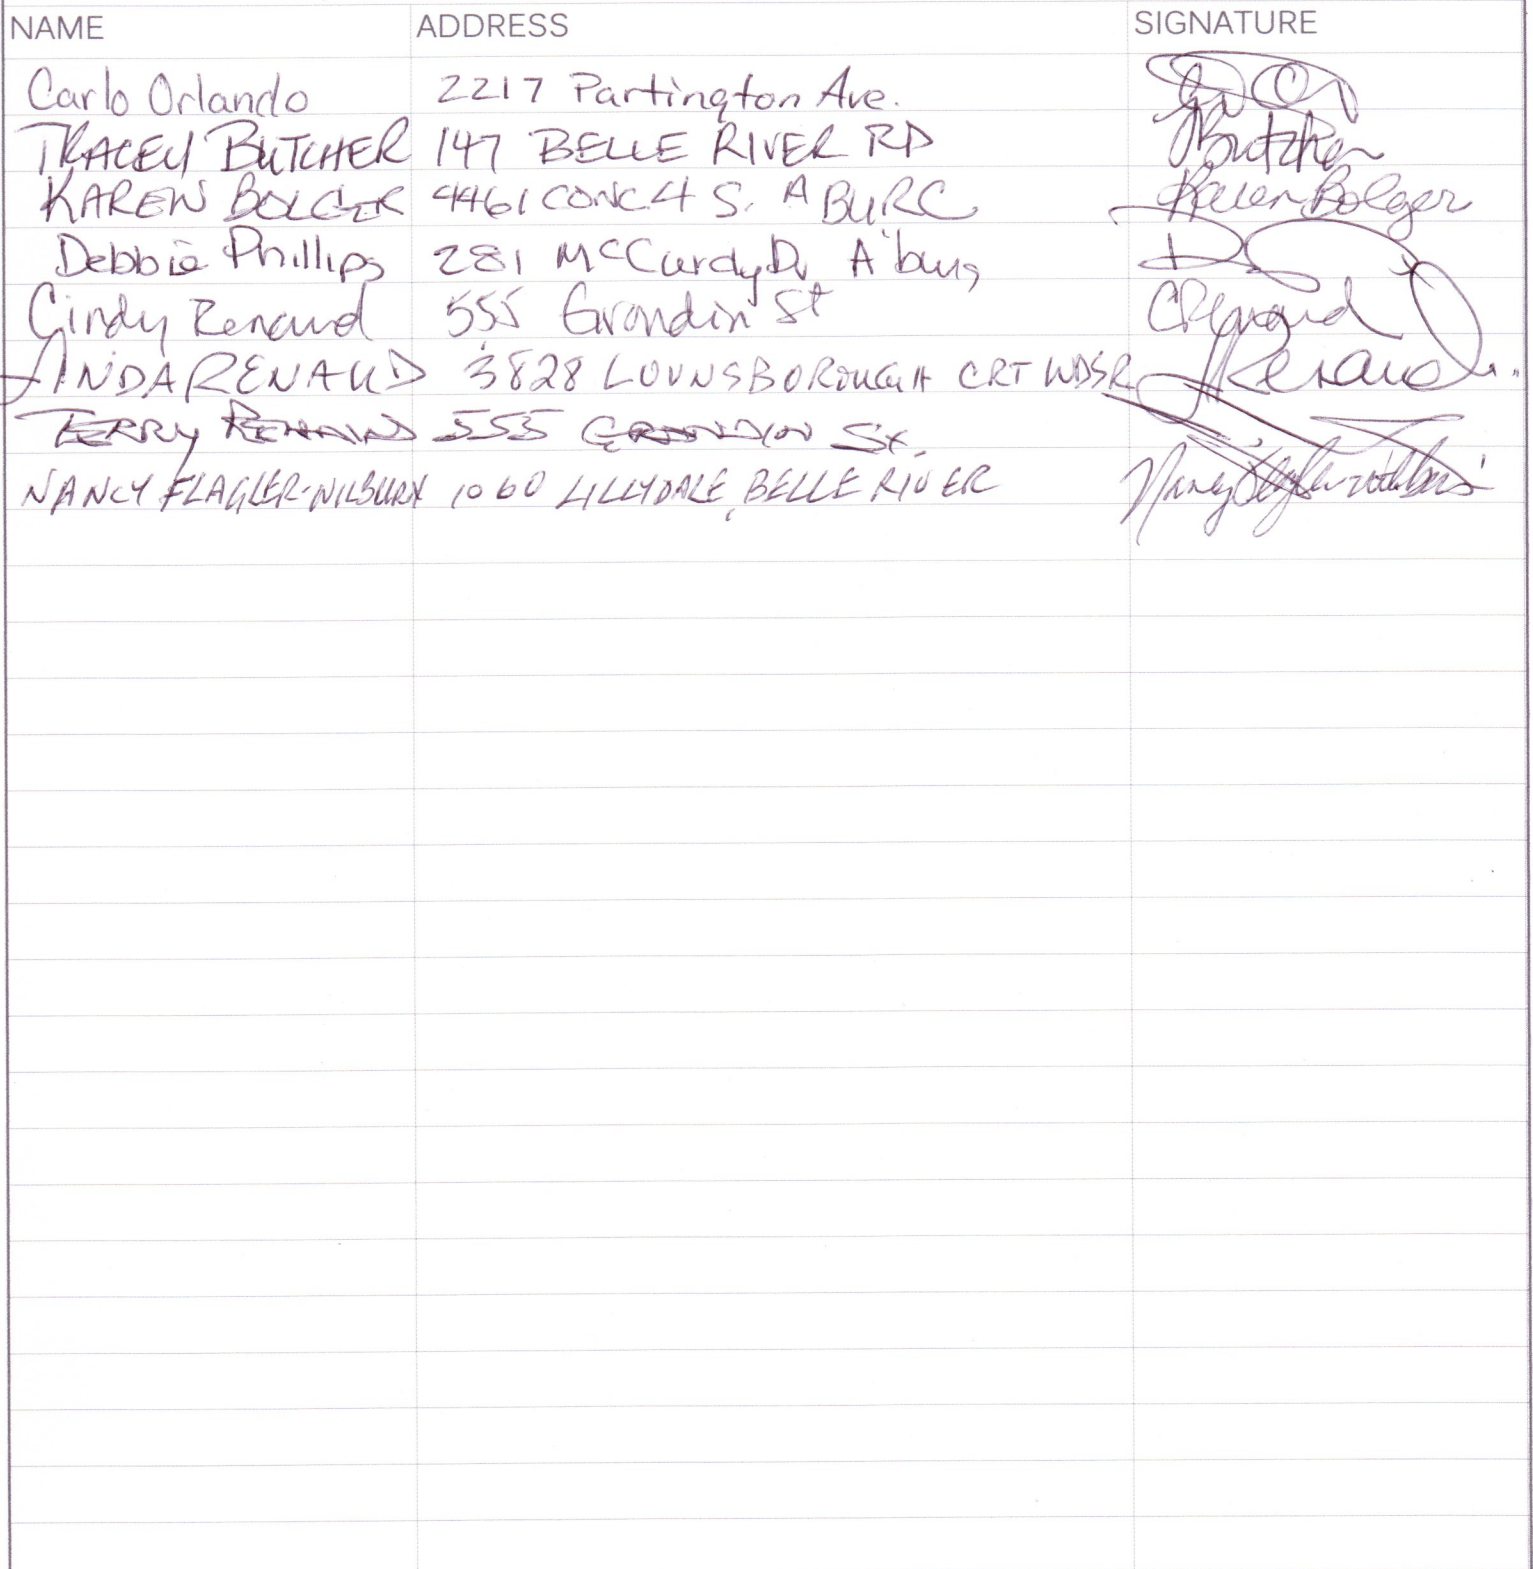 NAME ADDRESS SIGNATURE
Carlo Orlando 2217 Partington Ave.
TRACEY BUTCHER 147 BELLE RIVER RD
KAREN BOLGER 4461 CONC 4 S. ABURG Karen Bolger
Debbie Phillips 281 McCurdy Dr A'burg
Cindy Renaud 555 Grondin St CRenaud
LINDA RENAUD 3828 LOUNSBOROUGH CRT WDSR LRenaud
TERRY RENAUD 555 GRONDIN St.
NANCY FLAGLER-WILBURN 1060 LILLYDALE, BELLE RIVER